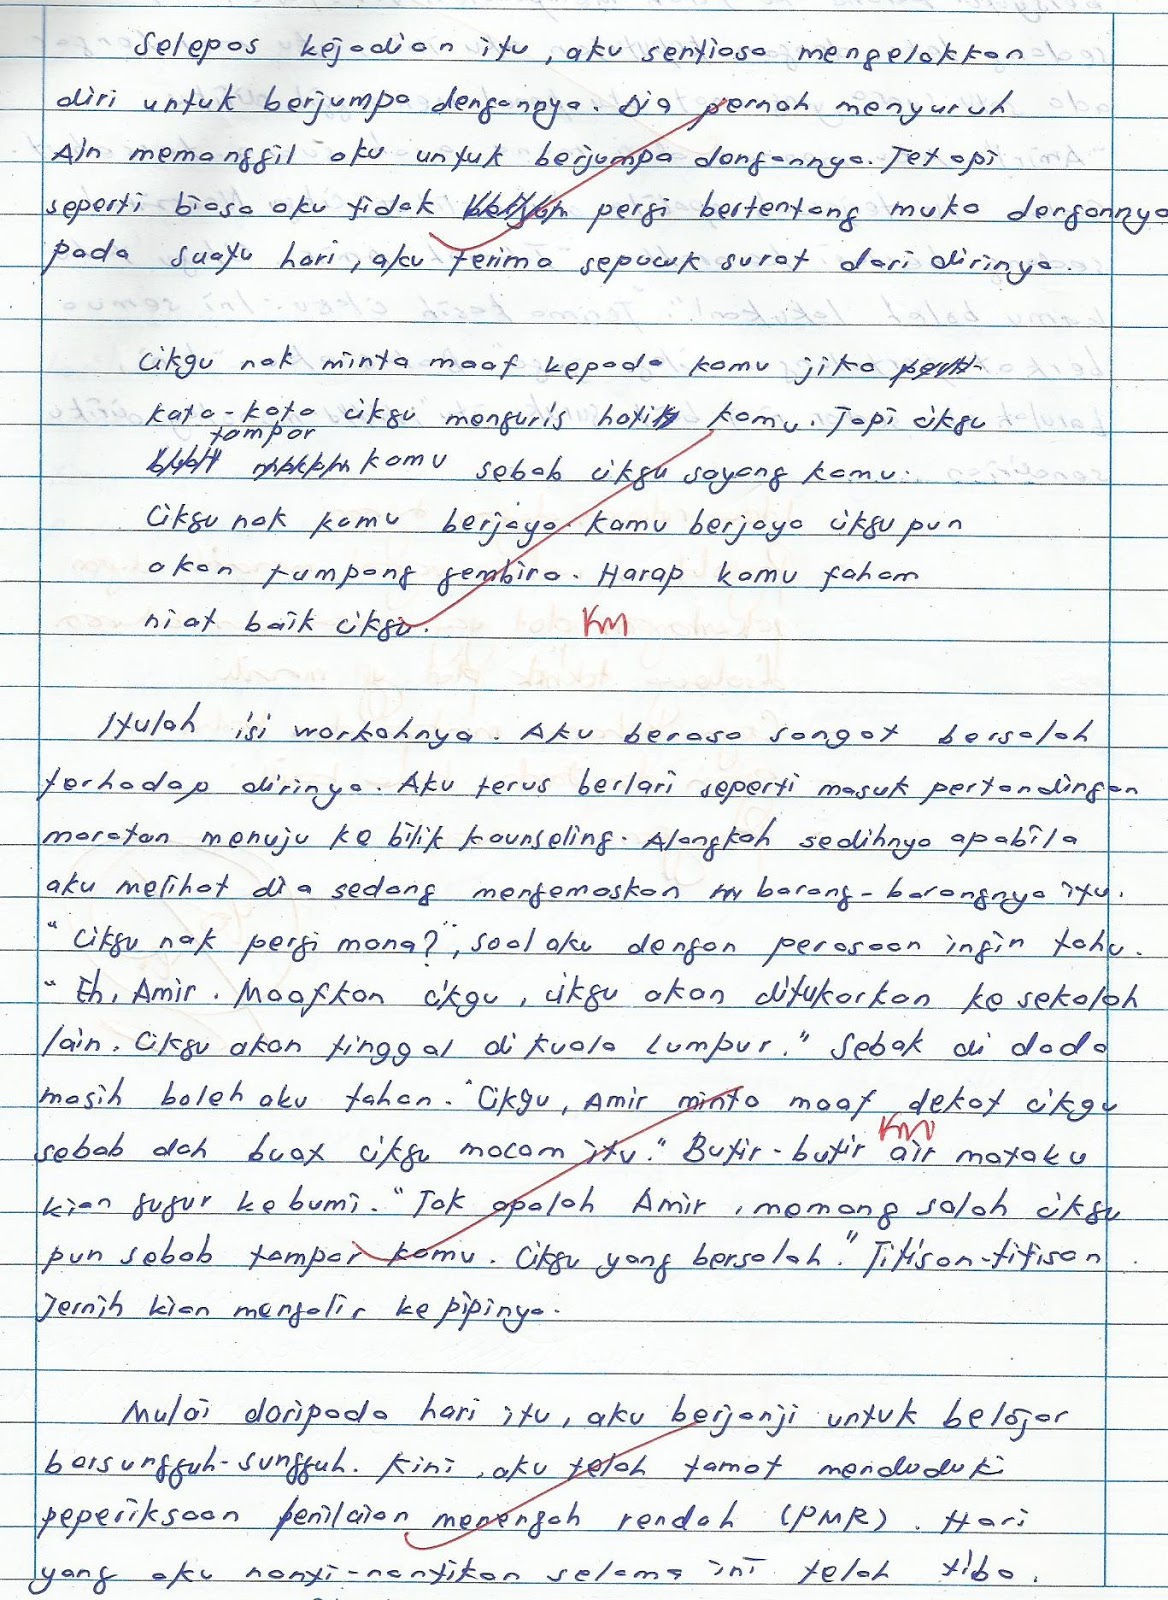 Selepas kejadian itu, aku sentiasa mengelakkan
diri untuk berjumpa dengannya. Dia pernah menyuruh
Ain memanggil aku untuk berjumpa dengannya. Tetapi
seperti biasa aku tidak pergi bertentang muka dengannya
pada suatu hari, aku terima sepucuk surat dari dirinya.
Cikgu nak minta maaf kepada kamu jika
kata-kata cikgu menguris hati kamu. Tapi cikgu
tampar
kamu sebab cikgu sayang kamu.
Cikgu nak kamu berjaya. kamu berjaya cikgu pun
akan tumpang gembira. Harap kamu faham
niat baik cikgu. KM
Itulah isi warkahnya. Aku berasa sangat bersalah
terhadap dirinya. Aku terus berlari seperti masuk pertandingan
maratan menuju ke bilik kaunseling. Alangkah sedihnya apabila
aku melihat dia sedang mengemaskan barang-barangnya itu.
"Cikgu nak pergi mana?", soal aku dengan perasaan ingin tahu.
"Eh, Amir. Maafkan cikgu, cikgu akan ditukarkan ke sekolah
lain. Cikgu akan tinggal di kuala lumpur." Sebak di dada
masih boleh aku tahan. "Cikgu, Amir minta maaf dekat cikgu
KM
sebab dah buat cikgu macam itu." Butir-butir air mataku
kian gugur ke bumi. "Tak apalah Amir, memang salah cikgu
pun sebab tampar kamu. Cikgu yang bersalah." Titisan-titisan
jernih kian mengalir ke pipinya.
Mulai daripada hari itu, aku berjanji untuk belajar
bersungguh-sungguh. Kini, aku telah tamat menduduki
peperiksaan penilaian menengah rendah (PMR). Hari
yang aku nanti-nantikan selama ini telah tiba.